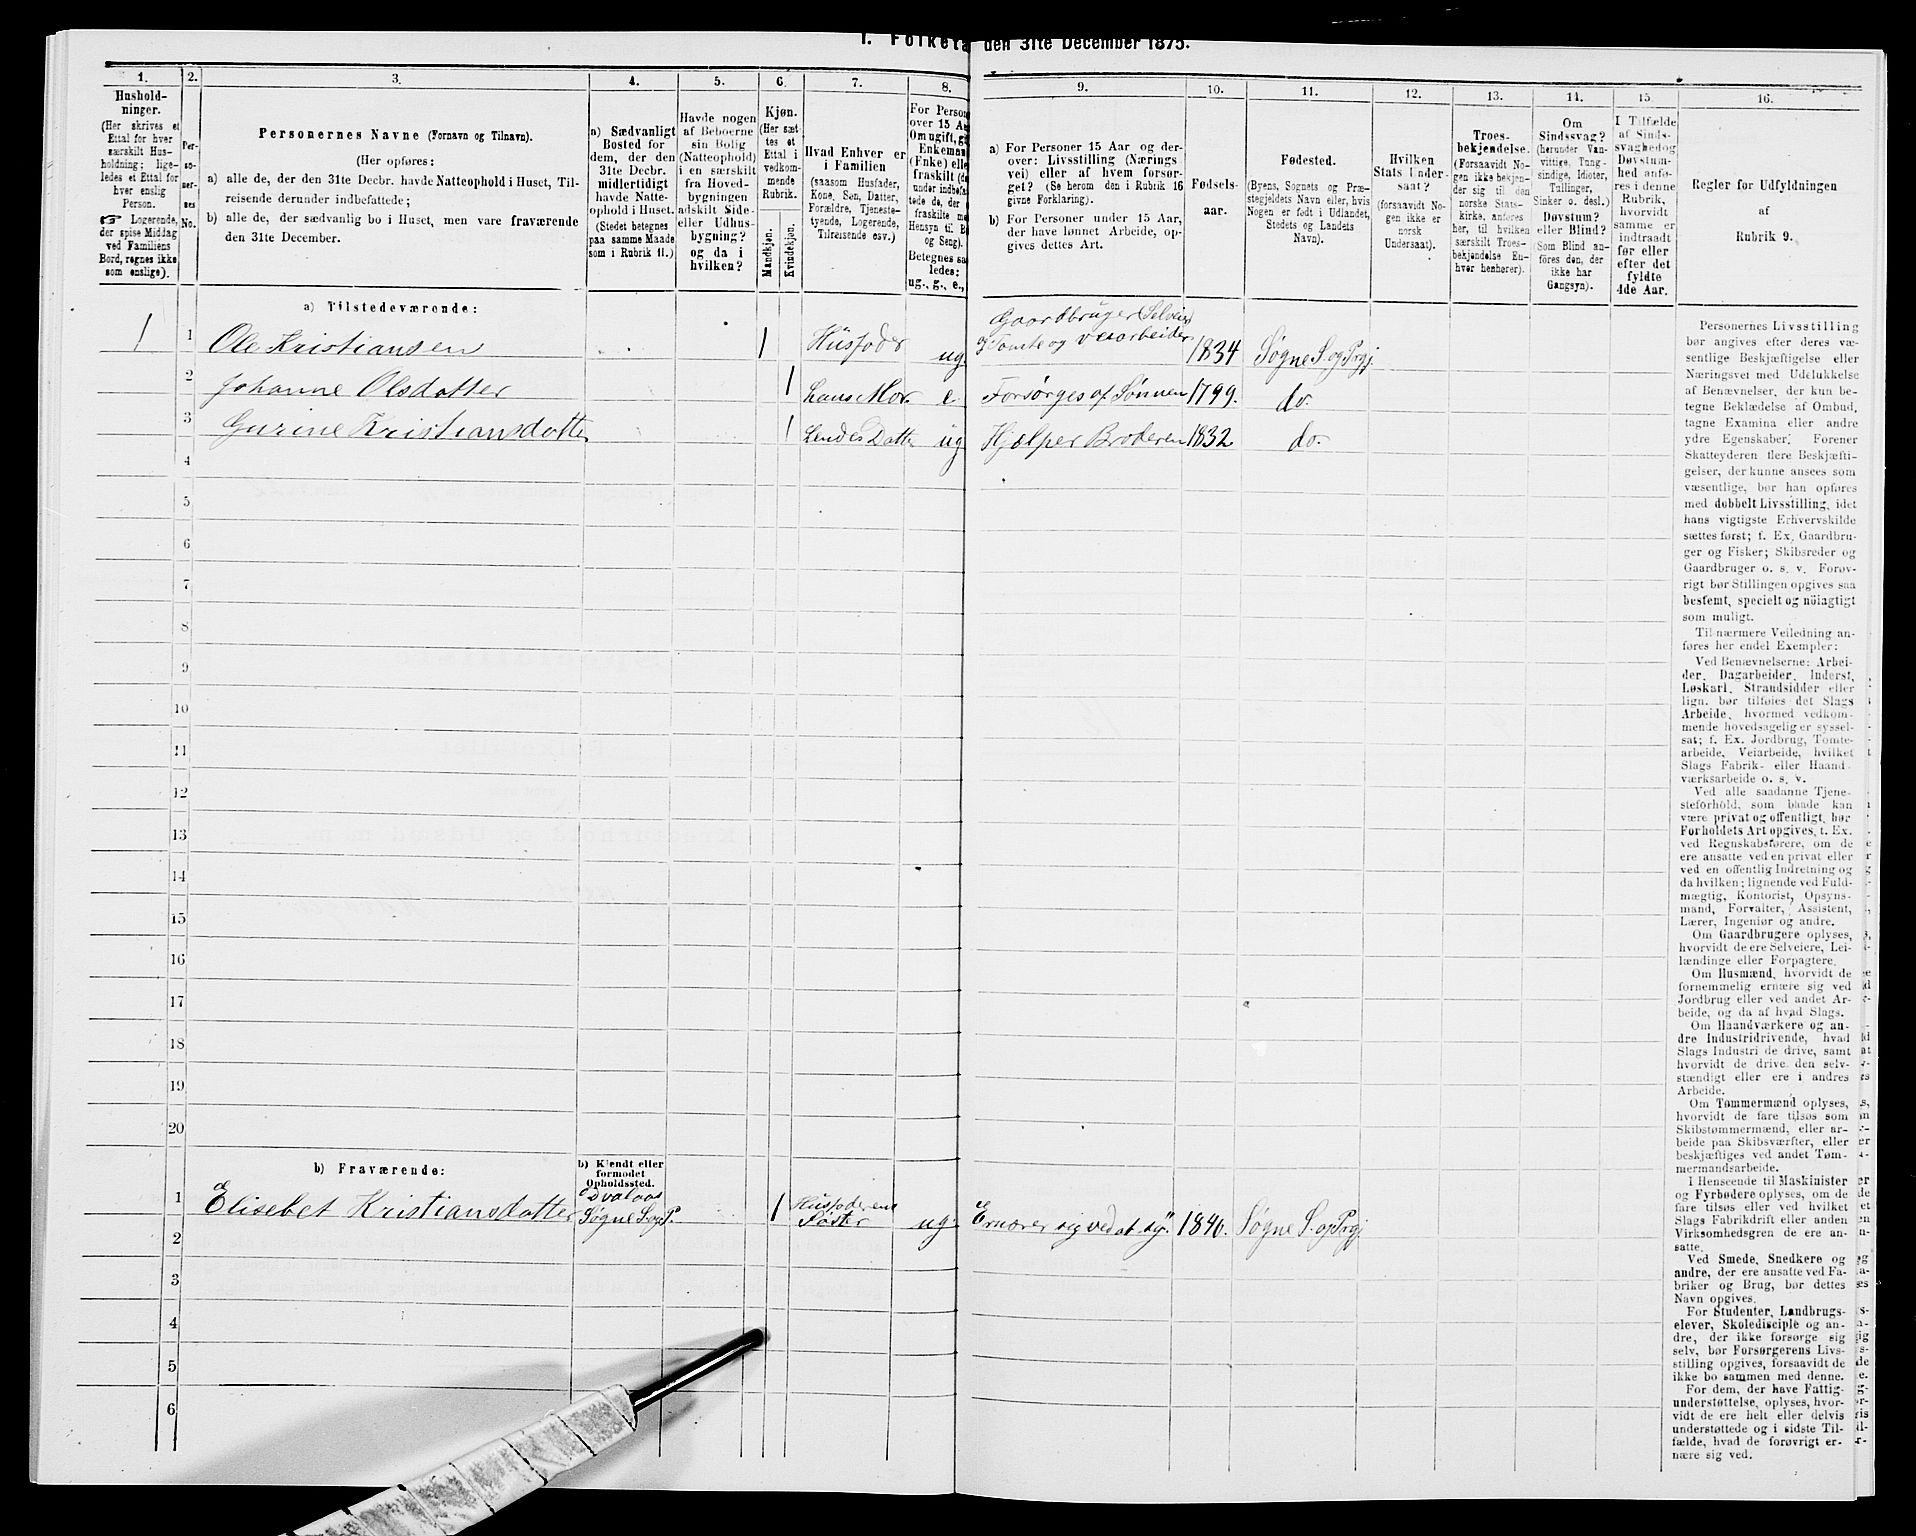 I. Folketæ den 31te December 1875.
1.
Hushold-
ninger.
(Her skrives et
Ettal for hver
særskilt Hus-
holdning; lige-
ledes et Ettal for
hver enslig
Person.
☞ Logerende,
der spise Middag
ved Familiens
Bord, regnes ikke
som enslige).
2.
Per-
so-
ner-
nes
No.
3.
Personernes Navne (Fornavn og Tilnavn).
(Her opføres:
a) alle de, der den 31te Decbr. havde Natteophold i Huset, Til-
reisende derunder indbefattede;
b) alle de, der sædvanlig bo i Huset, men vare fraværende
den 31te December.
4.
a) Sædvanligt
Bosted for
dem, der den
31te Decbr.
midlertidigt
havde Natte-
ophold i Huset.
(Stedet betegnes
paa samme Maade
som i Rubrik 11.)
5.
Havde nogen
af Beboerne
sin Bolig
(Natteophold)
i en særskilt
fra Hoved-
bygningen
adskilt Side-
eller Udhus-
bygning?
og da i
hvilken?
6.
Kjøn.
(Her sæt
tes et
Ettal i
vedkom-
mende
Rubrik.
Mandkjøn.
Kvindekjøn.
7.
Hvad Enhver er
i Familien
(saasom Husfader,
Kone, Søn, Datter,
Forældre, Tjeneste-
tyende, Logerende,
Tilreisende osv.)
8.
For Person
over 15 Aa
Om ugift, gi
Enkeman
(Enke) elle
fraskilt (d
under indbefa
tede de, d
fraskilte m
Hensyn til B
og Seng).
Betegnes sa
ledes:
ug., g., e.,
9.
a) For Personer 15 Aar og der-
over: Livsstilling (Nærings
vei) eller af hvem forsør-
get? (Se herom den i Rubrik 16
givne Forklaring).
b) For Personer under 15 Aar,
der have lønnet Arbeide, op-
gives dettes Art.
10.
Fødsels-
aar.
11.
Fødested.
(Byens, Sognets og Præ-
stegjeldets Navn eller, hvis
Nogen er født i Udlandet,
Stedets og Landets
Navn).
12.
Hvilken
Stats Under-
saat?
(forsaavidt No-
gen ikke er
norsk
Undersaat).
13.
Troes-
bekjendelse.
(Forsaavidt No-
gen ikke bekjen-
der sig til den
norske Stats-
kirke, anføres
her, til hvilken
særskilt Troes-
bekjendelse En-
hver henhører).
14.
Om
Sindssvag?
(herunder Van-
vittige, Tung-
sindige, Idioter,
Tullinger,
Sinker o. desl.)
Døvstum?
eller Blind?
(Som Blind an-
føres den, der
ikke har
Gangsyn).
15.
I Tilfælde
af Sinds-
svaghed og
Døvstum-
hed anfø-
res i denne
Rubrik,
hvorvidt
samme er
indtraadt
før eller
efter det
fyldte
4de Aar.
16.
Regler for Udfyldningen
af
Rubrik 9.
a) Tilstedeværende:
1 1 Ole Kristiansen 1 Husfader ug Gaardbruger Selveier og Tomte og veiarbeider 1834 Søgne S. og Prgj.
2 Johanne Olsdatter 1 hans Mor. e Forsørges af Sønnen 1799. do.
3 Gurine Kristiansdatter 1 hendes Datter ug Hjælper Broderen 1832 do.
4
5
6
7
8
9
10
11
12
13
14
15
16
17
18
19
20
b) Fraværende:
b) Kjendt eller
formodet
Opholdssted.
1 Elisebet Kristiansdatter Søgne S. og P. 1 Husfaderens Søster ug. Ernærer sig ved at sy." 1840. Søgne S. og Prgj.
2
3
4
5
6
Personernes Livsstilling
bør angives efter deres væ-
sentlige Beskjæftigelse eller
Næringsvei med Udelukkelse
af Benævnelser, der kun be-
tegne Beklædelse af Ombud,
tagne Examina eller andre
ydre Egenskaber. Forener
Skatteyderen flere Beskjæfti-
gelser, der kunne ansees som
væsentlige, bør han opføres
med dobbelt Livsstilling, idet
hans vigtigste Erhvervskilde
sættes først; f. Ex. Gaardbru-
ger og Fisker; Skibsreder og
Gaardbruger o. s. v. Forøv-
rigt bør Stillingen opgives saa
bestemt, specielt og nöiagtigt
som muligt.
Til nærmere Veiledning an-
føres her endel Exempler:
Ved Benævnelserne: Arbei-
der, Dagarbeider, Inderst,
Løskarl, Strandsidder eller
lign. bør tilføies det Slags
Arbeide, hvormed vedkom-
mende hovedsagelig er syssel-
sat; f. Ex. Jordbrug, Tomte-
arbeide, Veiarbeide, hvilket
Slags Fabrik- eller Haand-
værksarbeide o. s. v.
Ved alle saadanne Tjene-
steforhold, som baade kan
være privat og offentligt, bør
Forholdets Art opgives, t. Ex.
ved Regnskabsførere, om de
ere ansatte ved en privat eller
ved en offentlig Indretning og
da hvilken; lignende ved Fuld-
mægtig, Kontorist, Opsyns-
mand, Forvalter, Assistent,
Lærer, Ingeniør og andre.
Om Gaardbrugere oplyses,
hvorvidt de ere Selveiere, Lei-
lændinge eller Forpagtere.
Om Husmænd, hvorvidt de
fornemmelig ernære sig ved
Jordbrug eller ved andet Ar-
beide, og da af hvad Slags.
Om Haandværkere og an-
dre Industridrivende, hvad
Slags Industri de drive, samt
hvorvidt de drive den selv-
stændigt eller ere i andres
Arbeide.
Om Tømmermænd oplyses,
hvorvidt de fare tilsøs som
Skibstømmermænd, eller ar-
beide paa Skibsværfter, eller
beskjæftiges ved andet Tøm-
mermandsarbeide.
I Henseende til Maskinister
og Fyrbødere oplyses, om de
fare tilsøs eller ved hvilket
Slags Fabrikdrift eller anden
Virksomhedsgren de ere an-
satte.
Ved Smede, Snedkere og
andre, der ere ansatte ved Fa-
briker og Brug, bør dettes
Navn opgives.
For Studenter, Landbrugs-
elever, Skoledisciple og an-
dre, der ikke forsørge sig
selv, bør Forsørgerens Livs-
stilling opgives, forsaavidt de
ikke bo sammen med denne.
For dem, der have Fattig-
understøttelse, oplyses, hvor-
vidt de ere helt eller delvis
understøttede og i sidste Til-
fælde, hvad de forøvrigt er-
nære sig ved.